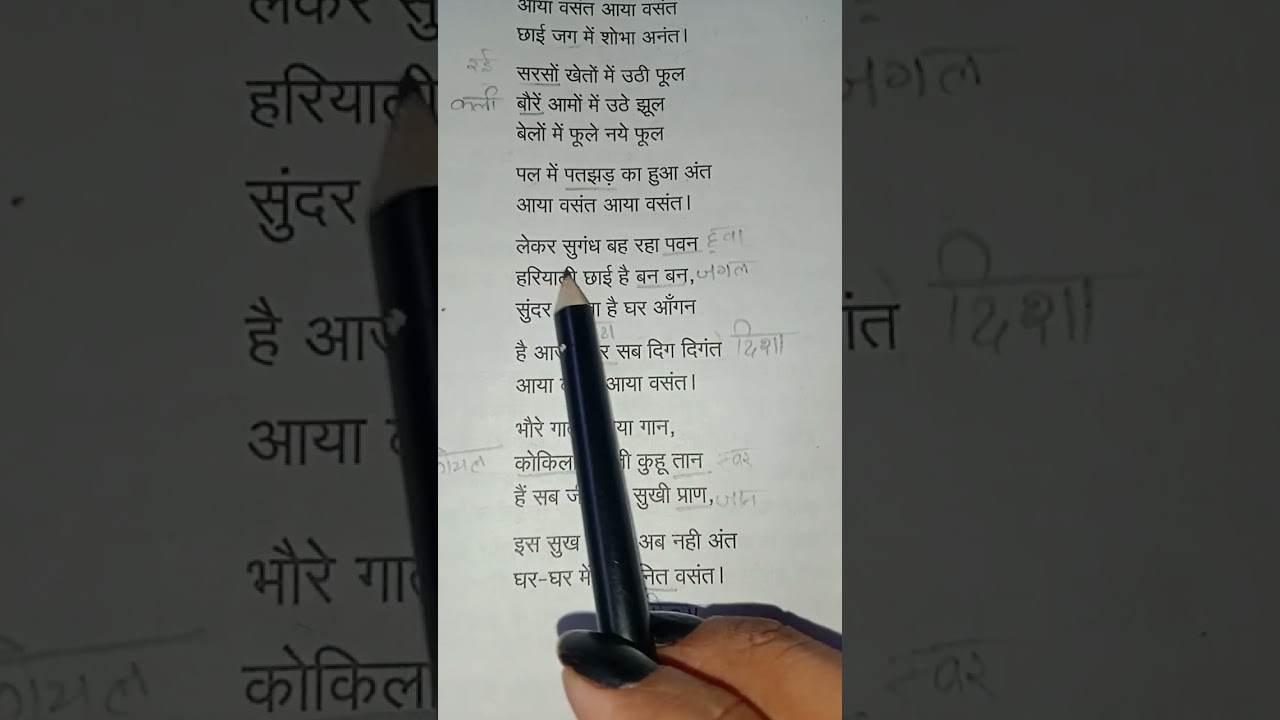 आया वसंत आया वसंत
छाई जग में शोभा अनंत।
सरसों खेतों में उठी फूल
कली बौरें आमों में उठे झूल
बेलों में फूले नये फूल
पल में पतझड़ का हुआ अंत
आया वसंत आया वसंत।
लेकर सुगंध बह रहा पवन हवा
हरियाली छाई है बन बन, जगल
सुंदर है घर आँगन
है सब दिग दिगंत दिशा
आया आया वसंत।
भौरे गान,
कोयल कोकिला कुहू तान स्वर
हैं सब सुखी प्राण, जान
इस सुख अब नही अंत
घर-घर में नित वसंत।